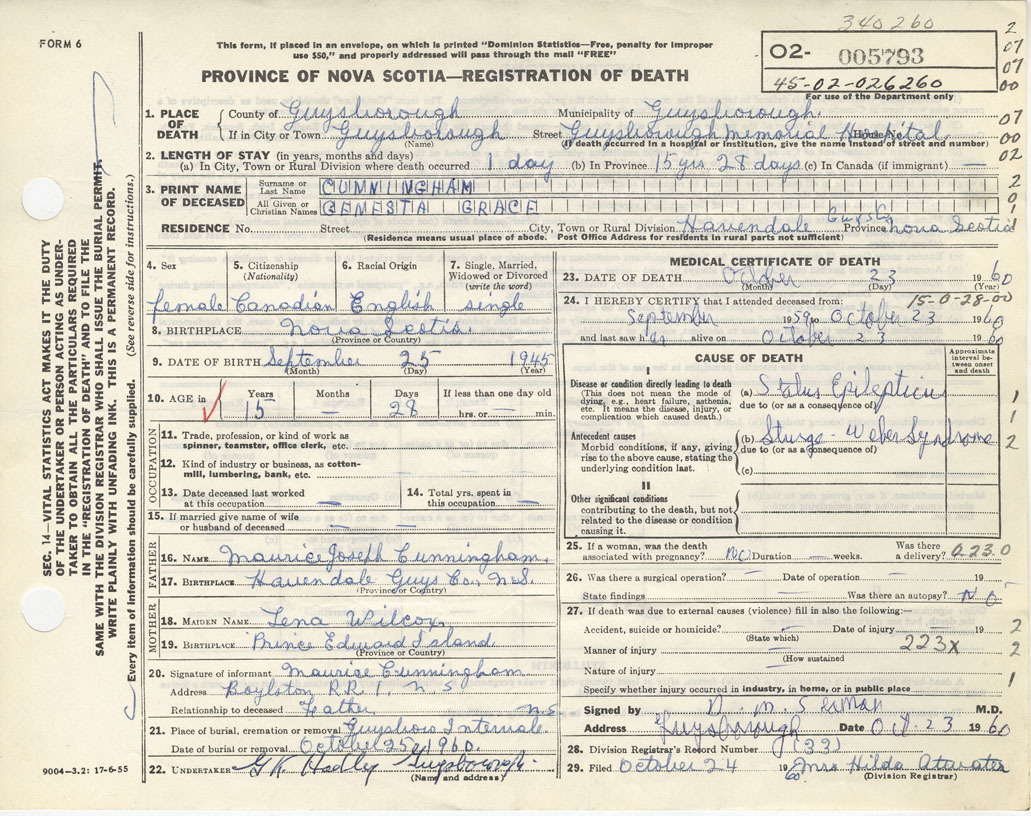 340260
FORM 6
This form, if placed in an envelope, on which is printed "Dominion Statistics—Free, penalty for improper
use $50," and properly addressed will pass through the mail "FREE"
PROVINCE OF NOVA SCOTIA—REGISTRATION OF DEATH
02- 005793
45-02-026260
For use of the Department only
2
07
07
00
07
00
02
2
0
1
1
1. PLACE OF DEATH
County of Guysborough Municipality of Guysborough.
If in City or Town Guysborough Street Guysborough Memorial Hospital House No.
(Name) (If death occurred in a hospital or institution, give the name instead of street and number)
2. LENGTH OF STAY (in years, months and days)
(a) In City, Town or Rural Division where death occurred 1 day (b) In Province 15 yrs 28 days (c) In Canada (if immigrant) —
3. PRINT NAME OF DECEASED
Surname or Last Name CUNNINGHAM
All Given or Christian Names GENESTA GRACE
RESIDENCE No. Street City, Town or Rural Division Havendale Guys Co Province Nova Scotia
(Residence means usual place of abode. Post Office Address for residents in rural parts not sufficient)
4. Sex
female
5. Citizenship (Nationality)
Canadian
6. Racial Origin
English
7. Single, Married, Widowed or Divorced (write the word)
single
8. BIRTHPLACE Nova Scotia
(Province or Country)
9. DATE OF BIRTH September 25 1945
(Month) (Day) (Year)
10. AGE in Years Months Days If less than one day old
15 — 28 hrs. or — min.
OCCUPATION
11. Trade, profession, or kind of work as spinner, teamster, office clerk, etc. —
12. Kind of industry or business, as cotton-mill, lumbering, bank, etc. —
13. Date deceased last worked at this occupation —
14. Total yrs. spent in this occupation —
15. If married give name of wife or husband of deceased — —
FATHER
16. NAME Maurice Joseph Cunningham.
17. BIRTHPLACE Havendale Guys Co., N.S.
(Province or Country)
MOTHER
18. MAIDEN NAME Lena Wilcox.
19. BIRTHPLACE Prince Edward Island
(Province or Country)
20. Signature of informant Maurice Cunningham
Address Boylston R.R. 1, N.S
Relationship to deceased Father N.S
21. Place of burial, cremation or removal Guysboro Intervale
Date of burial or removal October 25, 1960.
22. UNDERTAKER Hadley Guysborough.
(Name and address)
9004-3.2: 17-6-55
MEDICAL CERTIFICATE OF DEATH
23. DATE OF DEATH October 23 1960
(Month) (Day) (Year)
24. I HEREBY CERTIFY that I attended deceased from: 15-0-28-00
September 1959 to October 23 1960
and last saw her alive on October 23 1960
CAUSE OF DEATH
Approximate interval between onset and death
I
Disease or condition directly leading to death
(This does not mean the mode of dying, e.g., heart failure, asthenia, etc. It means the disease, injury, or complication which caused death.)
(a) Status Epilepticus
due to (or as a consequence of)
Antecedent causes
Morbid conditions, if any, giving rise to the above cause, stating the underlying condition last.
(b) Sturge-Weber Syndrome
due to (or as a consequence of)
(c)
II
Other significant conditions
contributing to the death, but not related to the disease or condition causing it.
1
1
2
25. If a woman, was the death associated with pregnancy? No Duration — weeks. Was there a delivery? 023.0
26. Was there a surgical operation? — Date of operation — 19
State findings — Was there an autopsy? No
27. If death was due to external causes (violence) fill in also the following:—
Accident, suicide or homicide? — Date of injury — 19 2
(State which)
Manner of injury — 223X 2
(How sustained
Nature of injury —
Specify whether injury occurred in industry, in home, or in public place 1
Signed by M.D.
Address Guysborough Date Oct 23 1960
28. Division Registrar's Record Number (33)
29. Filed October 24 1960 Mrs Hilda Atwater
(Division Registrar)
SEC. 14—VITAL STATISTICS ACT MAKES IT THE DUTY
OF THE UNDERTAKER OR PERSON ACTING AS UNDER-
TAKER TO OBTAIN ALL THE PARTICULARS REQUIRED
IN THE "REGISTRATION OF DEATH" AND TO FILE THE
SAME WITH THE DIVISION REGISTRAR WHO SHALL ISSUE THE BURIAL PERMIT.
WRITE PLAINLY WITH UNFADING INK. THIS IS A PERMANENT RECORD.
Every item of information should be carefully supplied. (See reverse side for instructions.)